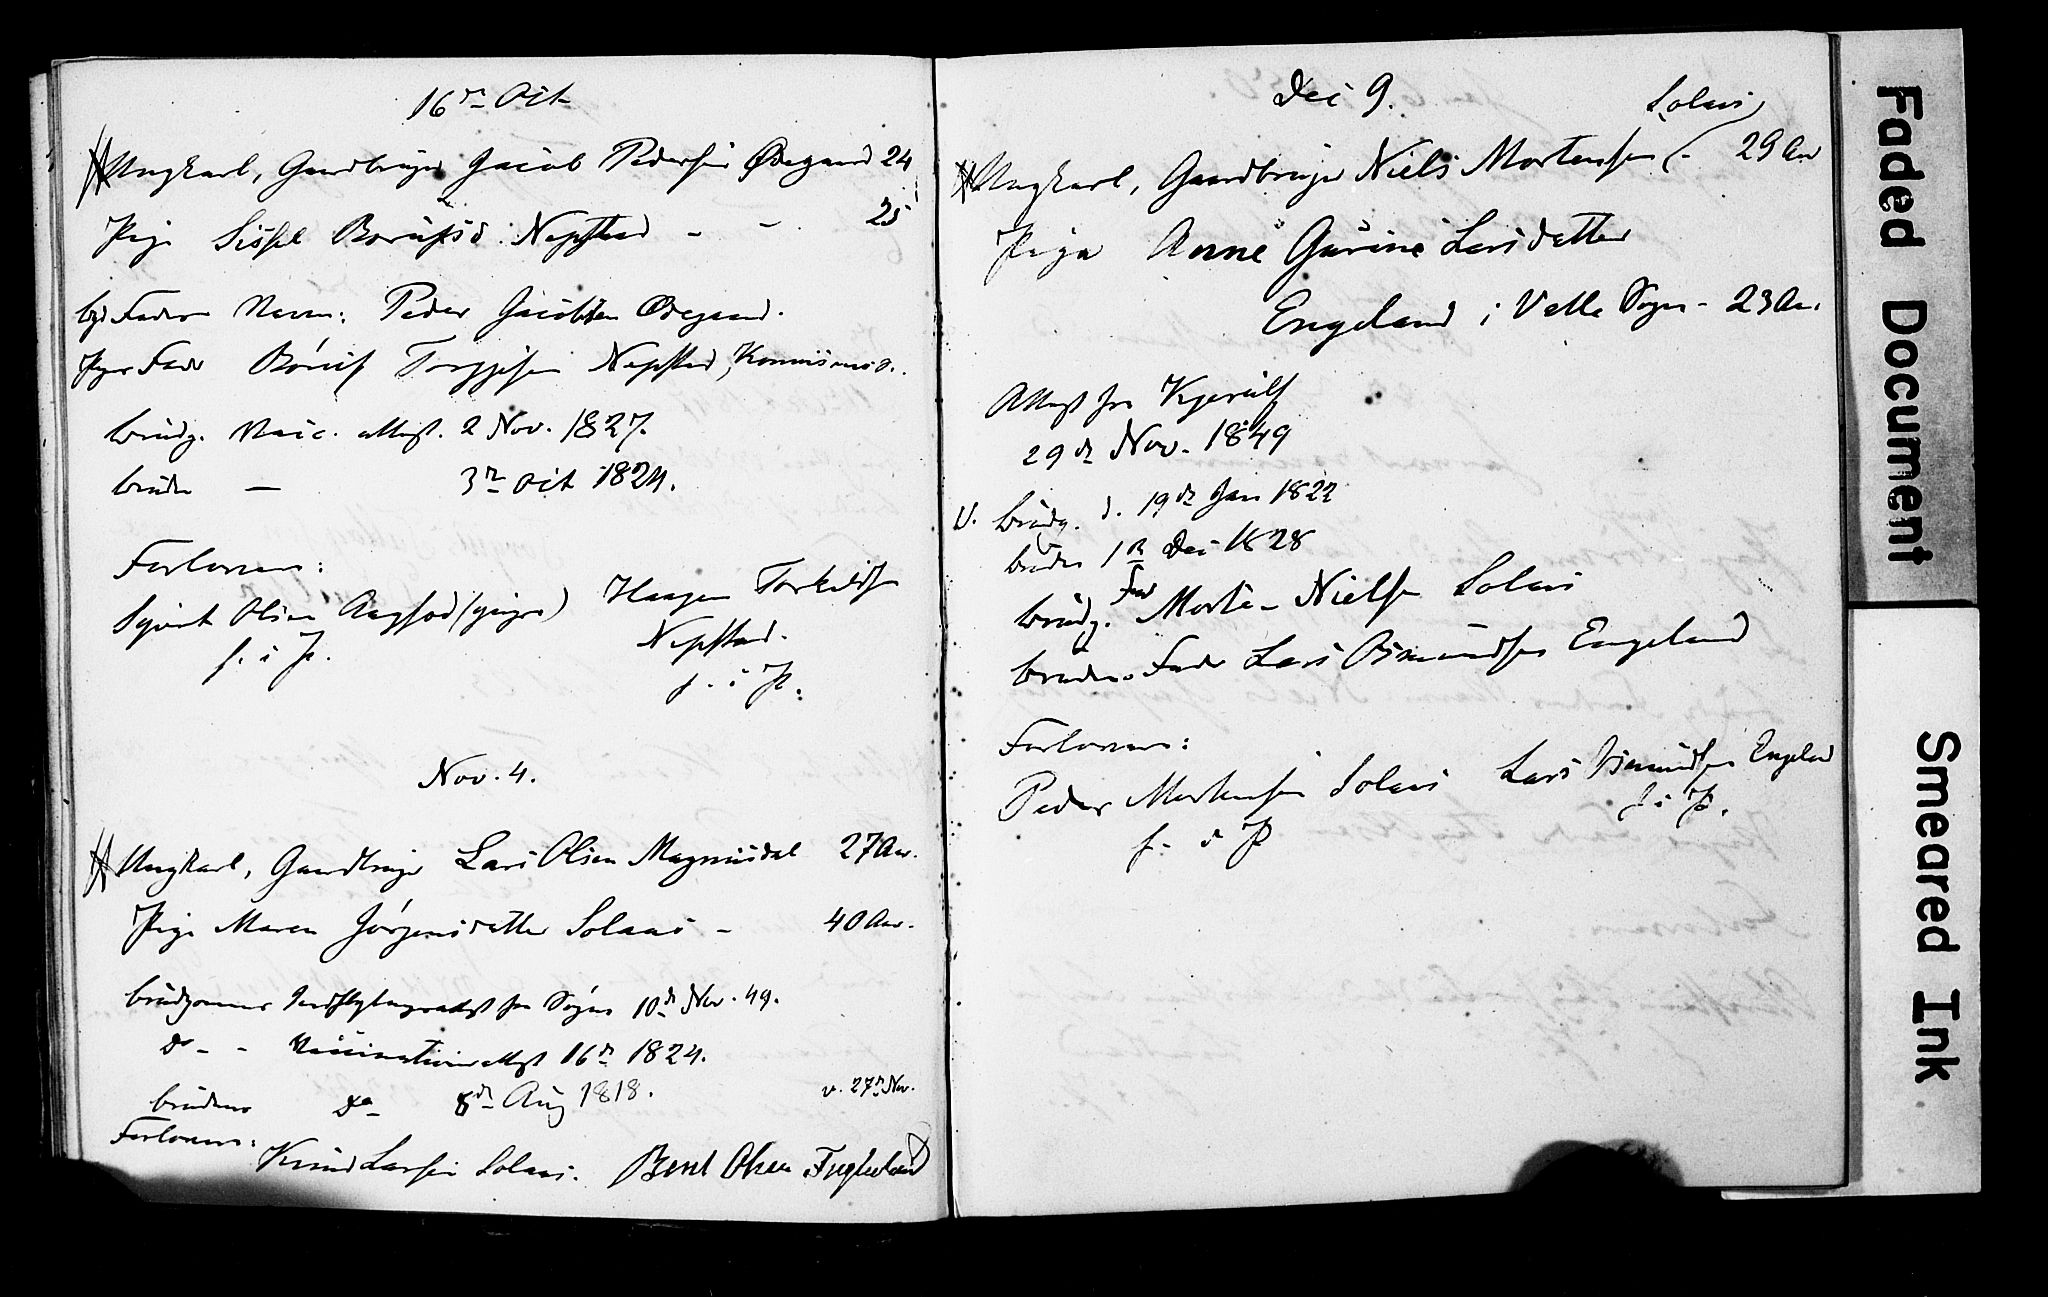 16de Oct
Ungkarl, Gaardbruger Jacob Pedersen Ødegaard 24
Pige Sissel Børufsd. Nepstad - - 25
bgs Faders Navn: Peder Jacobsen Ødegaard.
Piges Fader Børuf Torgjesen Nepstad,
brudg. Vacc. attest. 2 Nov. 1827.
bruden — 3de Oct 1824.
Forlovere:
Syvert Olsen Haagen Torkelds.
f. i P. Nepstad.
f. i P.
Nov. 4.
Ungkarl, Gaardbruger Lars Olsen Magnusdal 27 Aar.
Pige Maren Jörgensdatter Solaas - 40 Aar.
brudgommens Indflytngsattest fra Sogne 10de Nov. 49.
do - - Vaccinationsattest 16de 1824.
brudens do 8de Aug 1818. v. 27de Nov.
Forlovere:
Knud Larsen Solaas. Bent Olsen Fuglestvedt
Dec 9.
Solaas
Ungkarl, Gaardbruger Niels Mortensen - 29 Aar
Pigen Anne Gurine Larsdatter
Engeland i Valle Sogn - 23 Aar
Attest fra Kjerulf
29de Nov. 1849
V. brudg. d. 19de Jan 1822
bruden 1ste Dec 1828
brudg. Fad Morten Nielsen Solaas
brudens Fader Lars Osmundsen Engeland
Forlovere:
Peder Mortensen Solaas Lars Osmundsen Engeland
f. i P f i P.
Faded Document
Smeared Ink